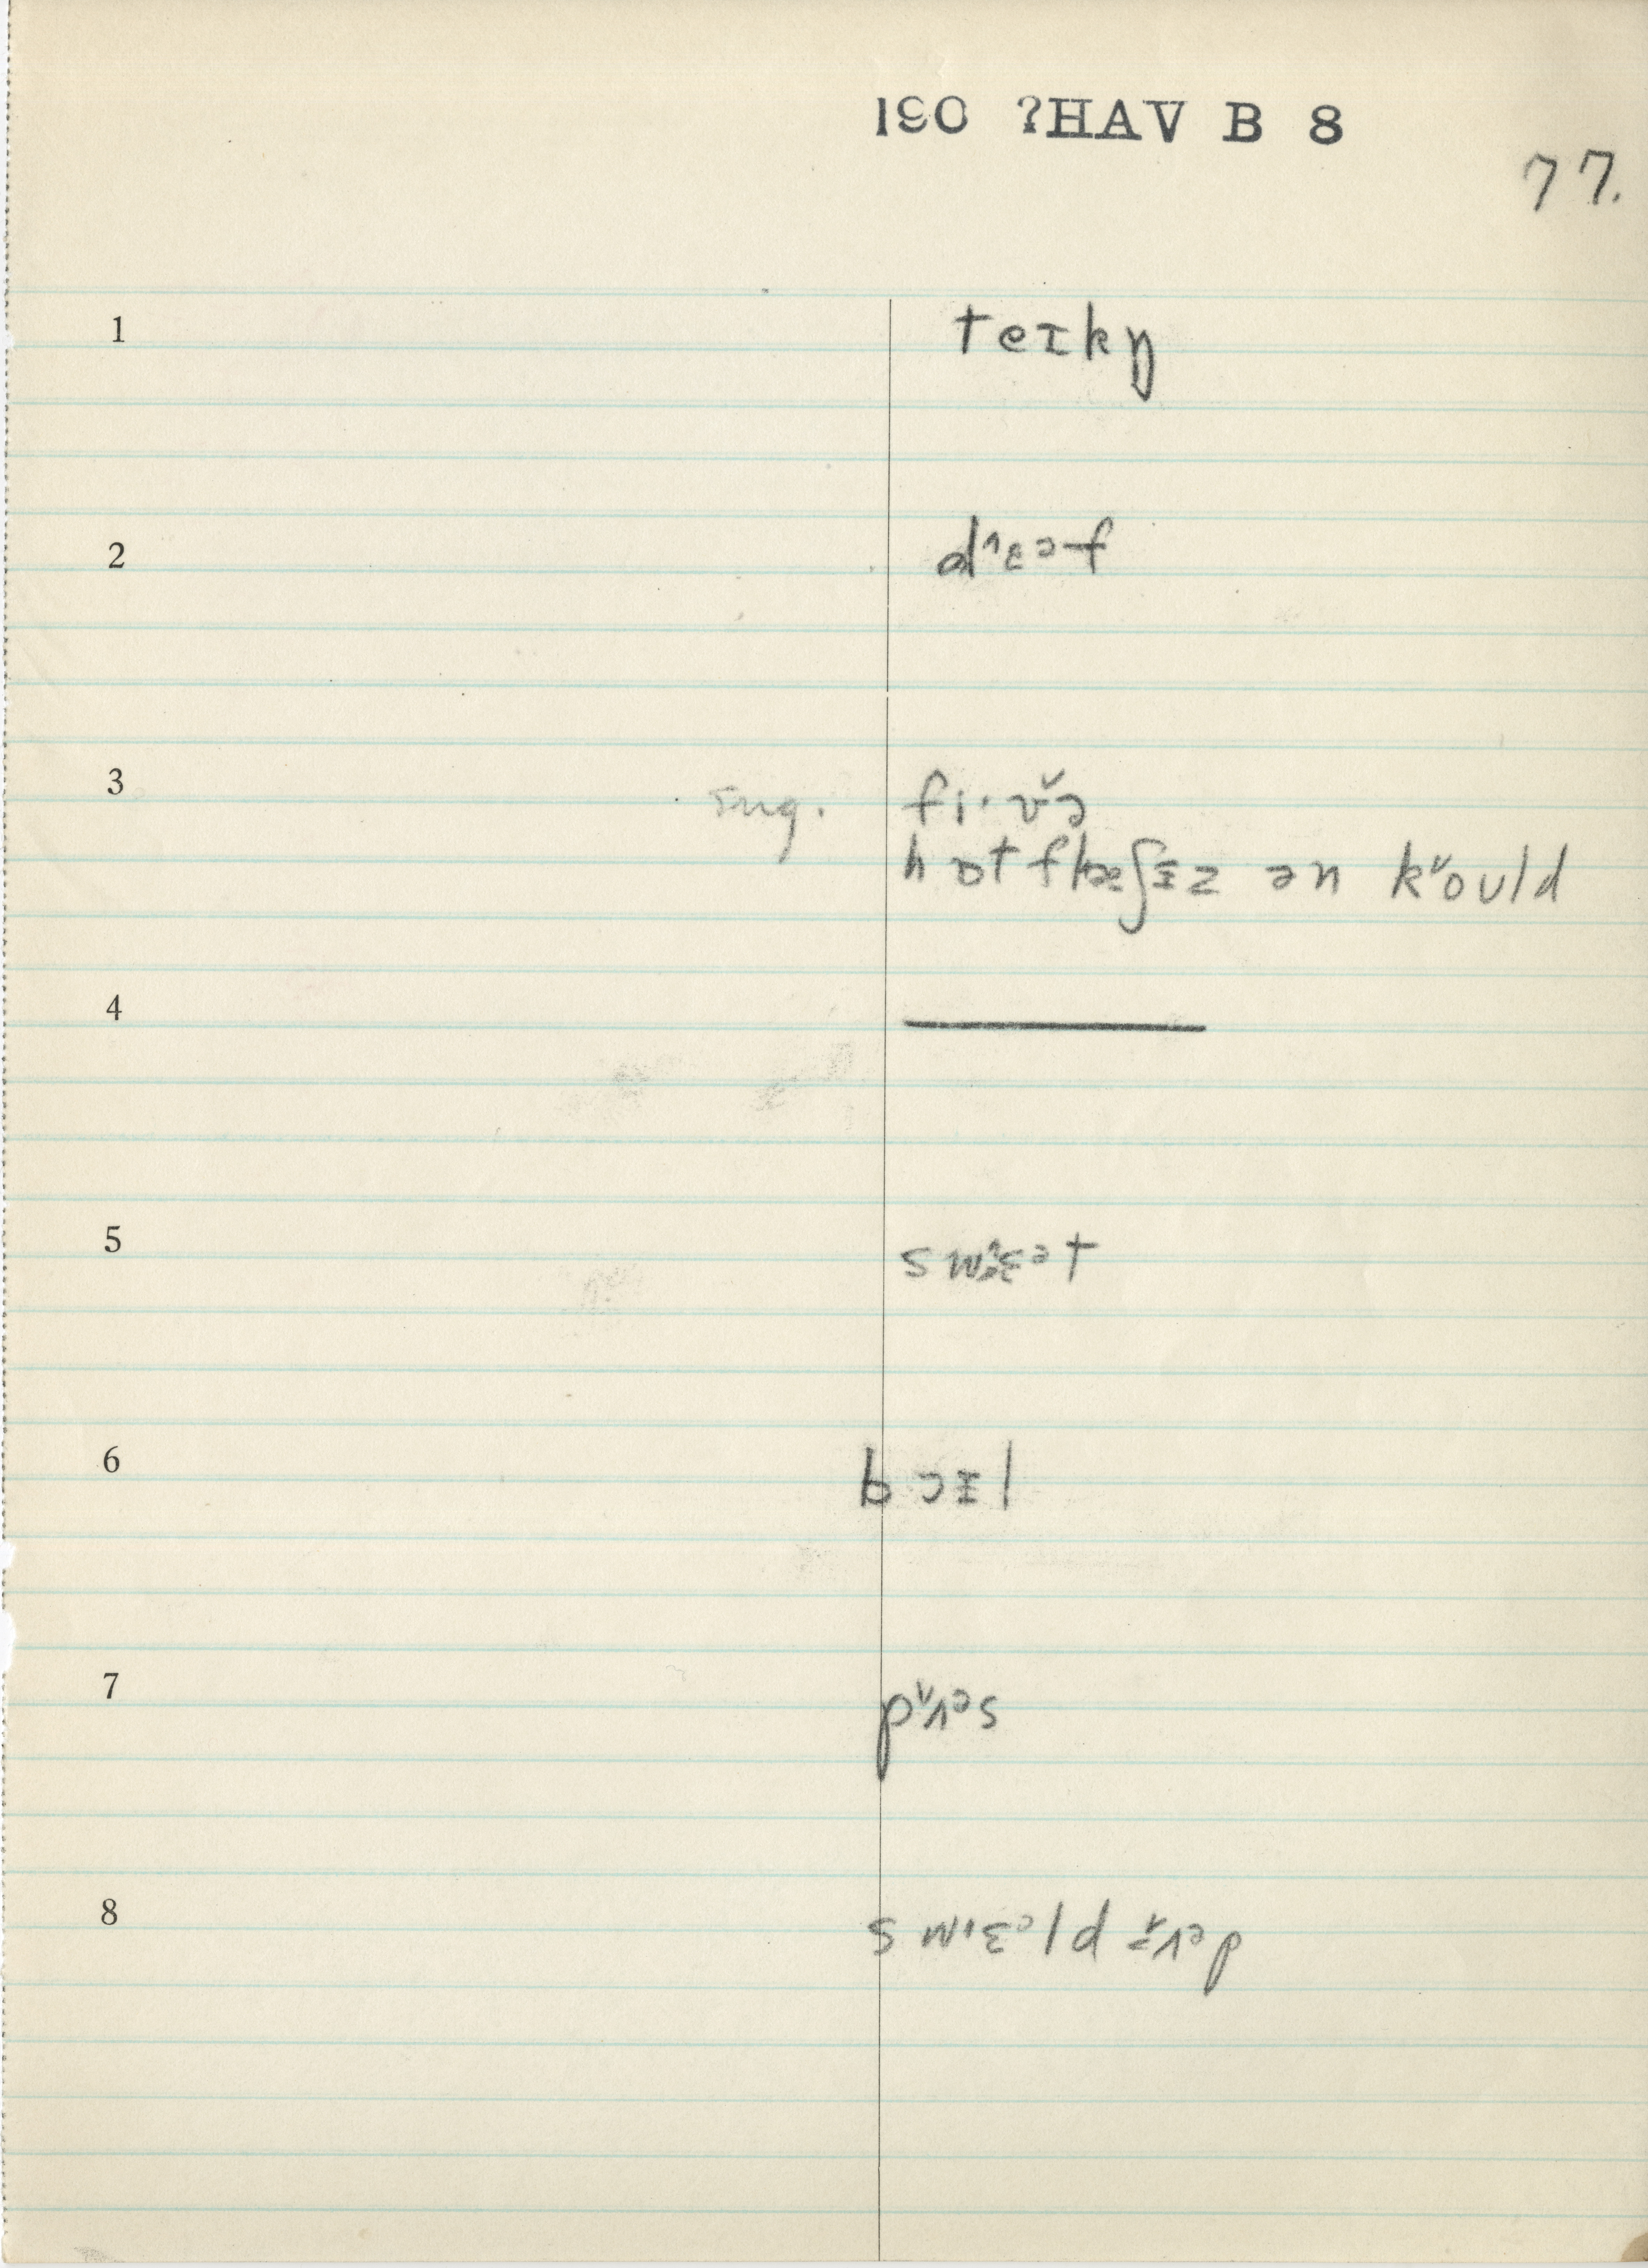 190 ?HAV B 8
77.
1 teɪkŋ
2 d˄ɛəf
3 sug. fi·v˅ə
hɒt flæʃɪz ən k˅ould
4
5 sw˄ɛət
6 bɔɪl
7 p˅ʌəs
8 swɛəld ʌəp